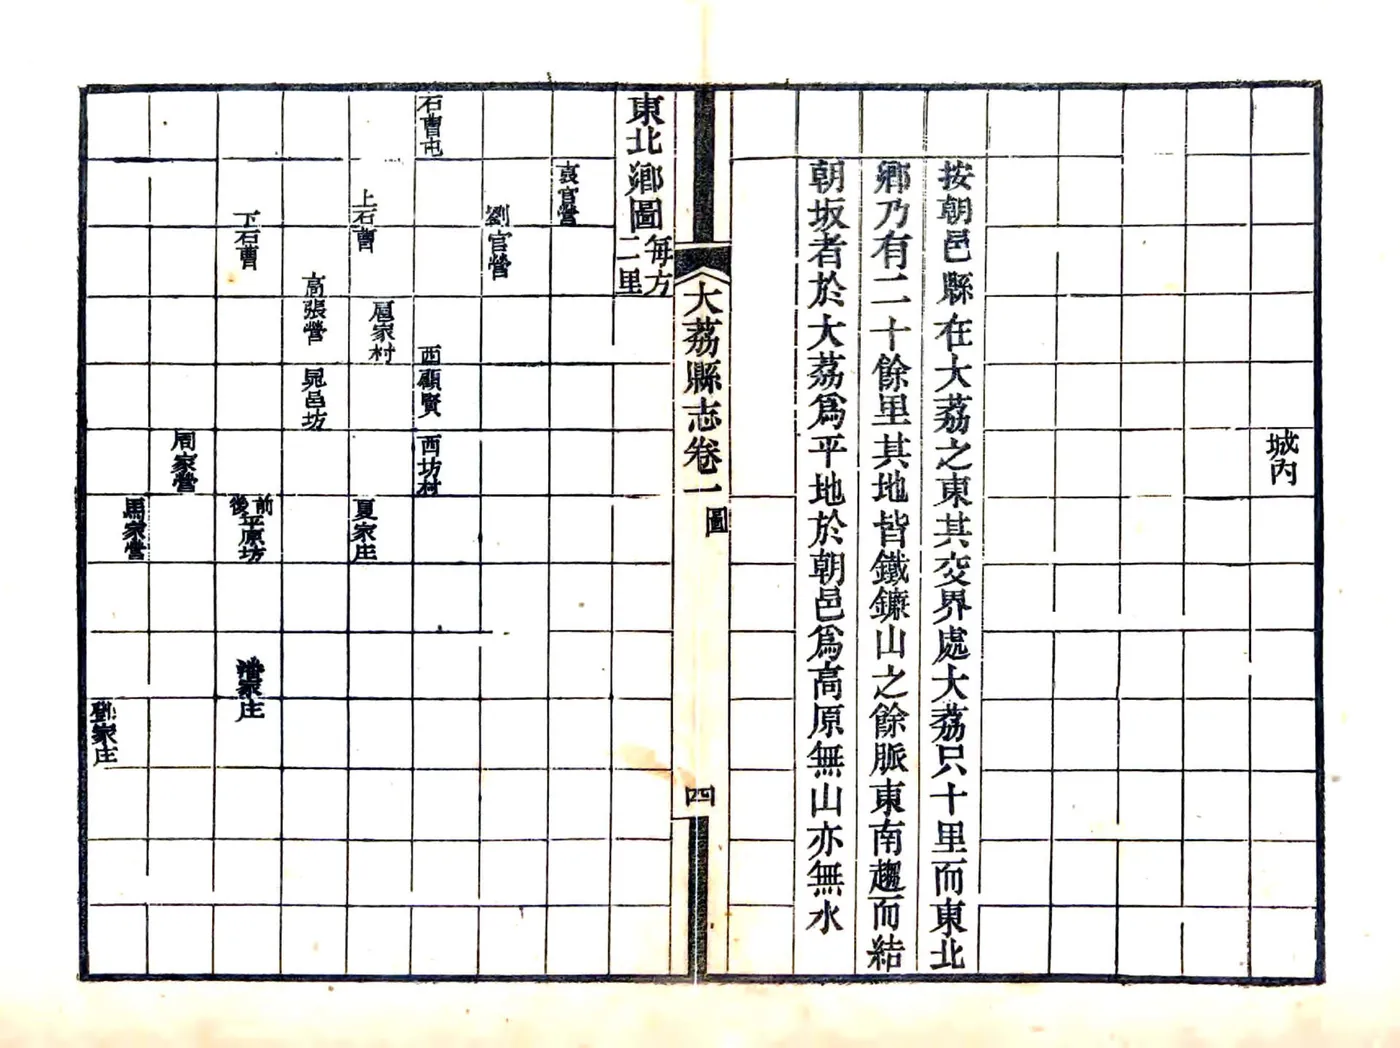 城內
按朝邑縣在大荔之東其交界處大荔只十里而東北
鄉乃有二十餘里其地皆鐵鐮山之餘脈東南趨而結
朝坂者於大荔爲平地於朝邑爲高原無山亦無水
大荔縣志卷一
圖
四
東北鄉圖
每方
二里
袁官營
劉官營
石曹屯
西顧賢
西坊村
上石曹
扈家村
夏家庄
高張營
晁邑坊
下石曹
前
後
平原坊
潘家庄
周家營
馬家營
鄧家庄